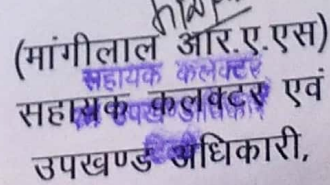 (मांगीलाल आर.ए.एस)
सहायक कलेक्टर
सहायक कलक्टर एवं
उपखण्ड अधिकारी,